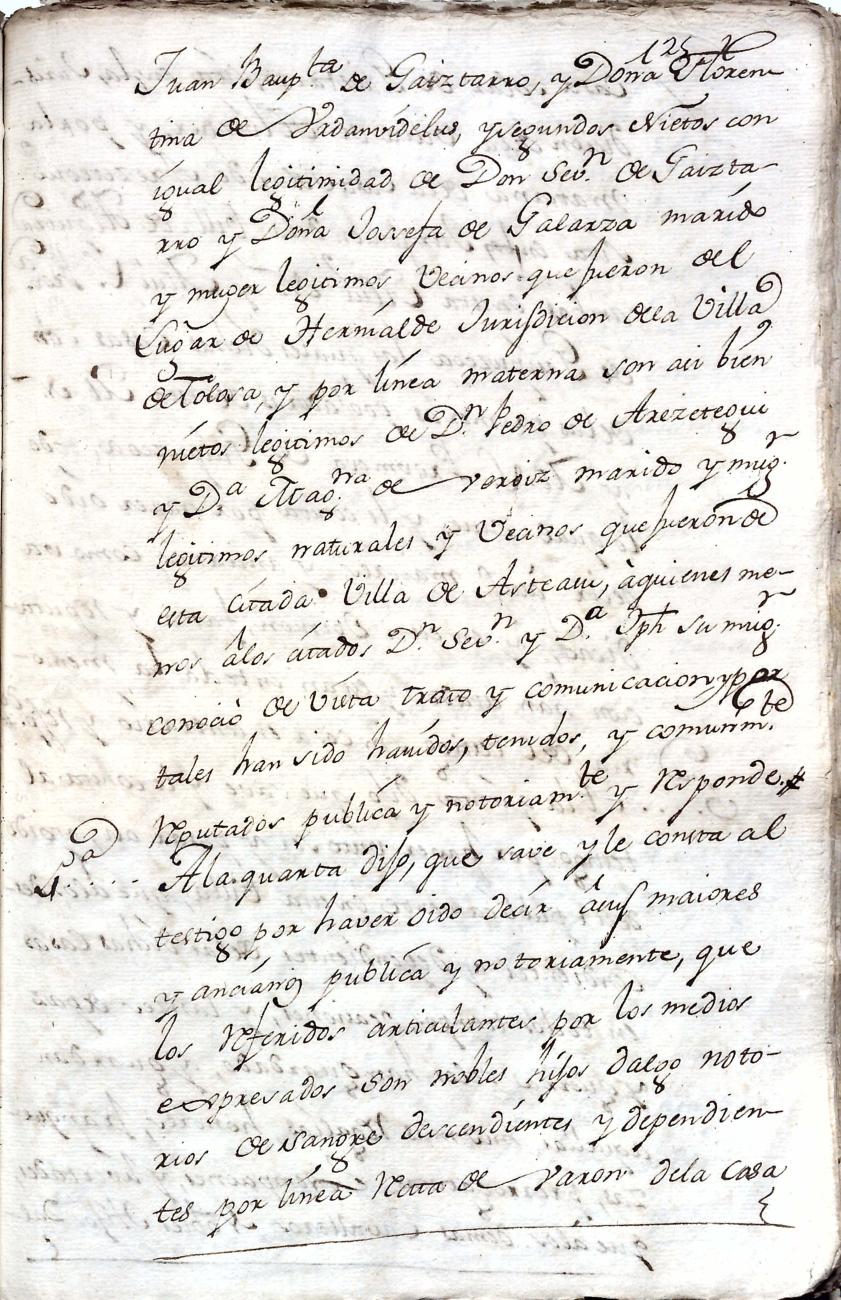 125
Juan Baup.ta de Gaiztarro, y Doña Floren-
tina de Urdanvidelus, y segundos Nietos con
igual legitimidad de Don Sev.n de Gaizta-
rro y Doña Jossefa de Galarza marido
y muger legitimos Vecinos que fueron del
Lugar de Hernialde Jurisdicion dela Villa
de Tolosa, y por linea materna son asi bien
nietos legitimos de D.n Pedro de Arezetegui
y D.a Mag.na de verdiz marido y mug.r
legitimos naturales y Vecinos que fueron de
esta citada Villa de Asteasu, à quienes me-
nos àlos citados D.n Sev.n y D.a Jph su mug.r
conociò de Vista trato y comunicacion y por
tales han sido havidos, tenidos, y comunm.te
Reputados publica y notoriam.te y Responde.#
4.a Ala quarta dijo, que save y le consta al
testigo por haver oido decir àsus maiores
y ancianos publica y notoriamente, que
los Referidos articulantes por los medios
expresados son nobles hijos dalgo noto-
rios de sangre descendientes y dependien-
tes por linea Recta de varon dela Casa